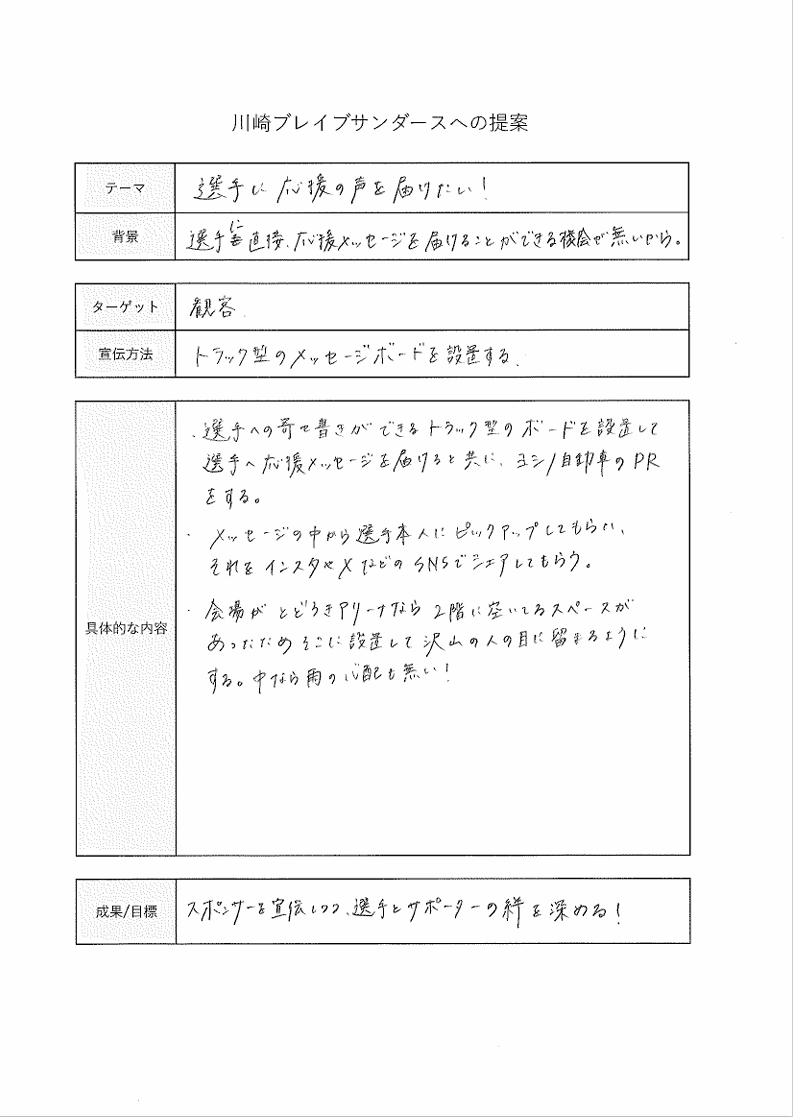 川崎ブレイブサンダースへの提案
テーマ
選手に応援の声を届けたい！
背景
選手に直接、応援メッセージを届けることができる機会が無いから。
ターゲット
観客.
宣伝方法
トラック型のメッセージボードを設置する.
具体的な内容
・選手への寄せ書きができるトラック型のボードを設置して
選手へ応援メッセージを届けると共に、ヨシノ自動車のPR
をする。
・メッセージの中から選手本人にピックアップしてもらい、
それをインスタやXなどのSNSでシェアしてもらう。
・会場がとどろきアリーナなら2階に空いてるスペースが
あったためそこに設置して沢山の人の目に留まるように
する。中なら雨の心配も無い！
成果/目標
スポンサーを宣伝しつつ、選手とサポーターの絆を深める！